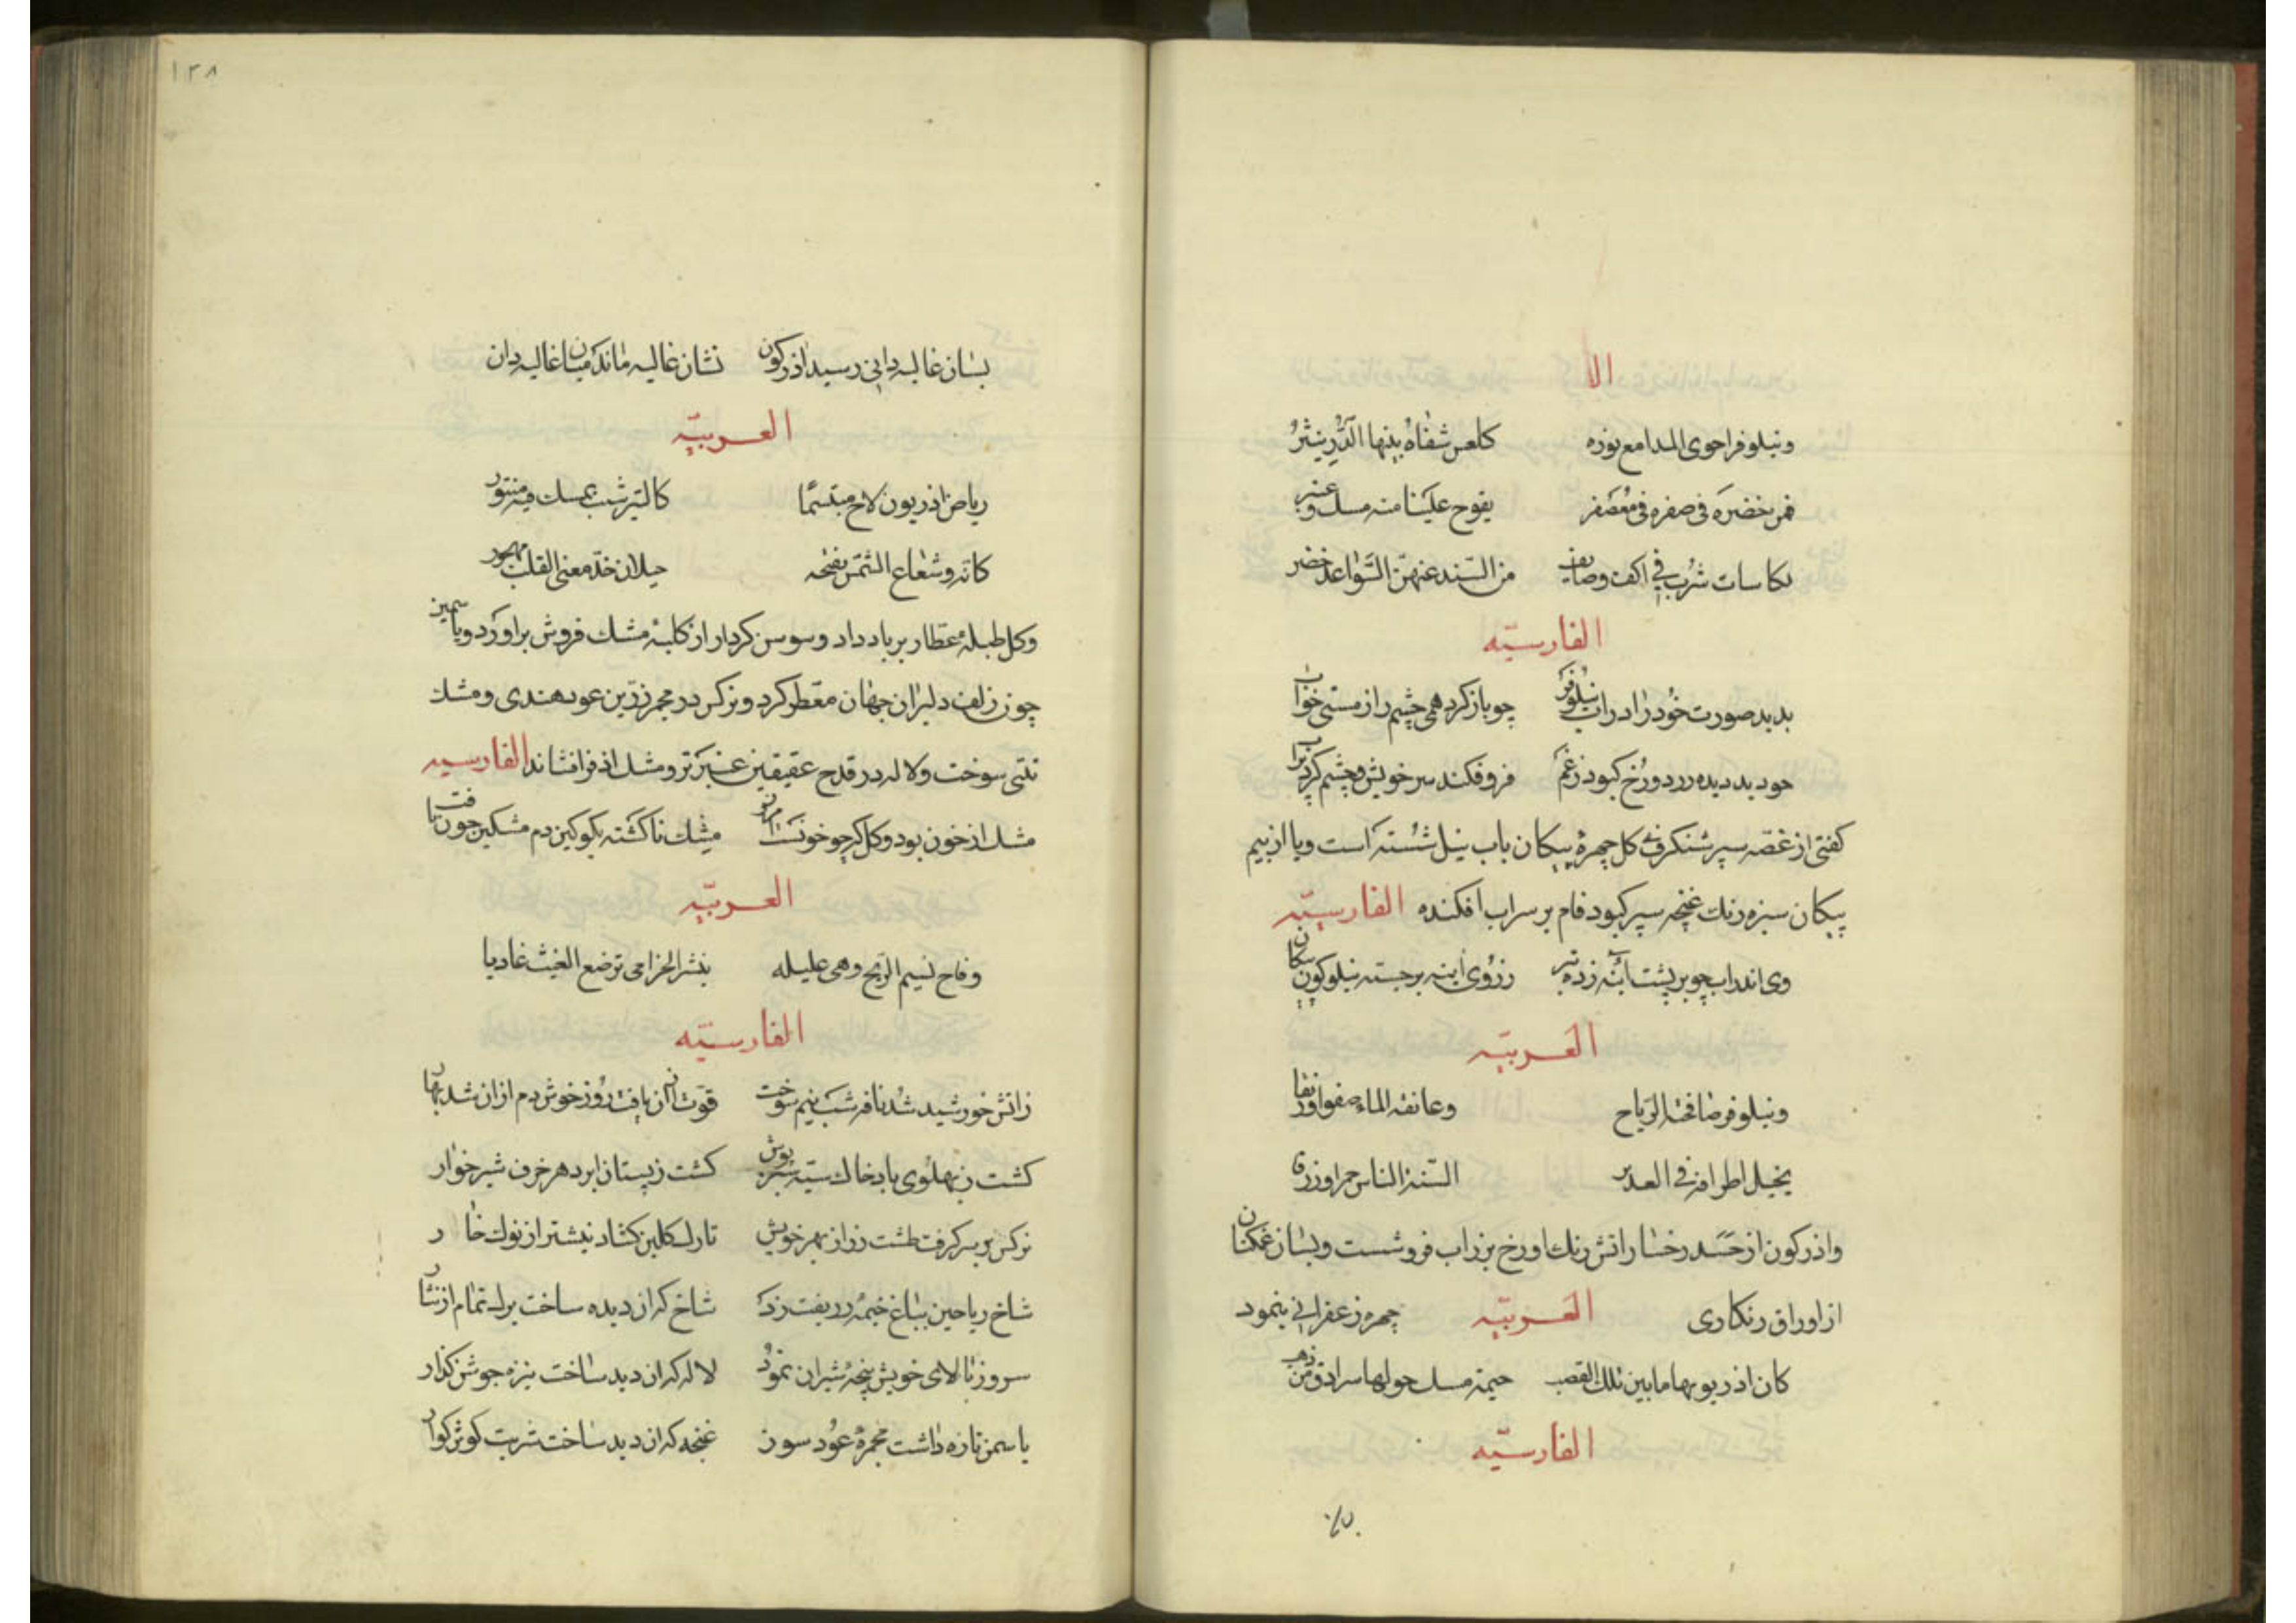 الا
ونیلوفر احوی المدامع نوره کلعس شفاه بینها الدّر ینثر
فمن خضره فی صفره فی معصفر یفوح علینا منه مسك وعنبر
لكاسات شرب فی اكف وصایف من السّند عنهنّ السّواعد خضر
الفارسیّه
بدید صورت خود را در اب نیلوفر چو باز كرد همی چشم را ز مستی خواب
چو دید دیده زرد و رخ كبود ز غم فرو فكند سر خویش و چشم كرد پراب
كفتی از غصّه سپر شنكرفی كل چهرهٔ پیكان باب نیل شسته است ویا از بیم
پیكان سبزه رنك غنچه سپر كبود فام بر سر اب افكنده الفارسیّه
وی اندر اب چو بر پشت اینه زده تیر ز روی اینه برجسته نیلوكون پیكان
العربیّه
ونیلوفر صافحته الریاح وعانقه الماء صفوا ورنقا
یخیل اطرافه فی الغدیر السنة الناس حمرا وزرقا
واذركون از حسد رخسار اتش رنك او رخ بزر اب فروشست وبسان غمكنان
از اوراق زنكاری العربیّه چهره زعفرانی بنمود
كان اذریونها ما بین تلك القضب خیمة مسك حولها سرادق من ذهب
الفارسیّه
۱۳۸
بسان غالیه دانی رسید اذركون نشان غالیه مانده میان غالیه دان
العربیّه
ریاض اذریون لاح مبتسما كالتبر شیب بمسك فیه منثور
كانه وشعاع الشمس یفتحه خیلان خدّ معنی القلب مهجور
وكل طبلهٔ عطّار بر باد داد وسوسن كردار از كلبهٔ مشك فروش براورد ویاسمین
چون زلف دلبران جهان معطر كرد ونركس در مجمر زرّین عود هندی ومشك
تبّتی سوخت ولاله در قدح عقیقین عنبر تر ومشك اذفر افشاند الفارسیه
مشك از خون بود وكل كر چو خونست امروز مشك ناكشته بكو كین دم مشكین چون یافت
العربیّه
وفاح نسیم الرّیح وهی علیله بنشر الخزامی ترضع الغیث غادیا
الفارسیّه
ز اتش خورشید شد نافه شب نیم سوخت قوّت ازان یافت روز خوش دم ازان شد بهار
كشت ز پهلوی باد خاك سیه سبز پوش كشت ز پستان ابر دهر خرف شیر خوار
نركس بر سر كرفت طشت زر از بهر خویش تا رك كلبن كشاد نیشتر از نوك خار
شاخ ریاحین بباغ خیمهٔ زربفت زد شاخ كه ان دیده ساخت برك تمام از نثار
سرو ز بالای خویش پنجهٔ شیران نمود لاله كه ان دید ساخت نیزه جوشن كذار
یاسمن تازه داشت مجمرهٔ عود سوز غنچه كه ان دید ساخت شربت كوثر كوار